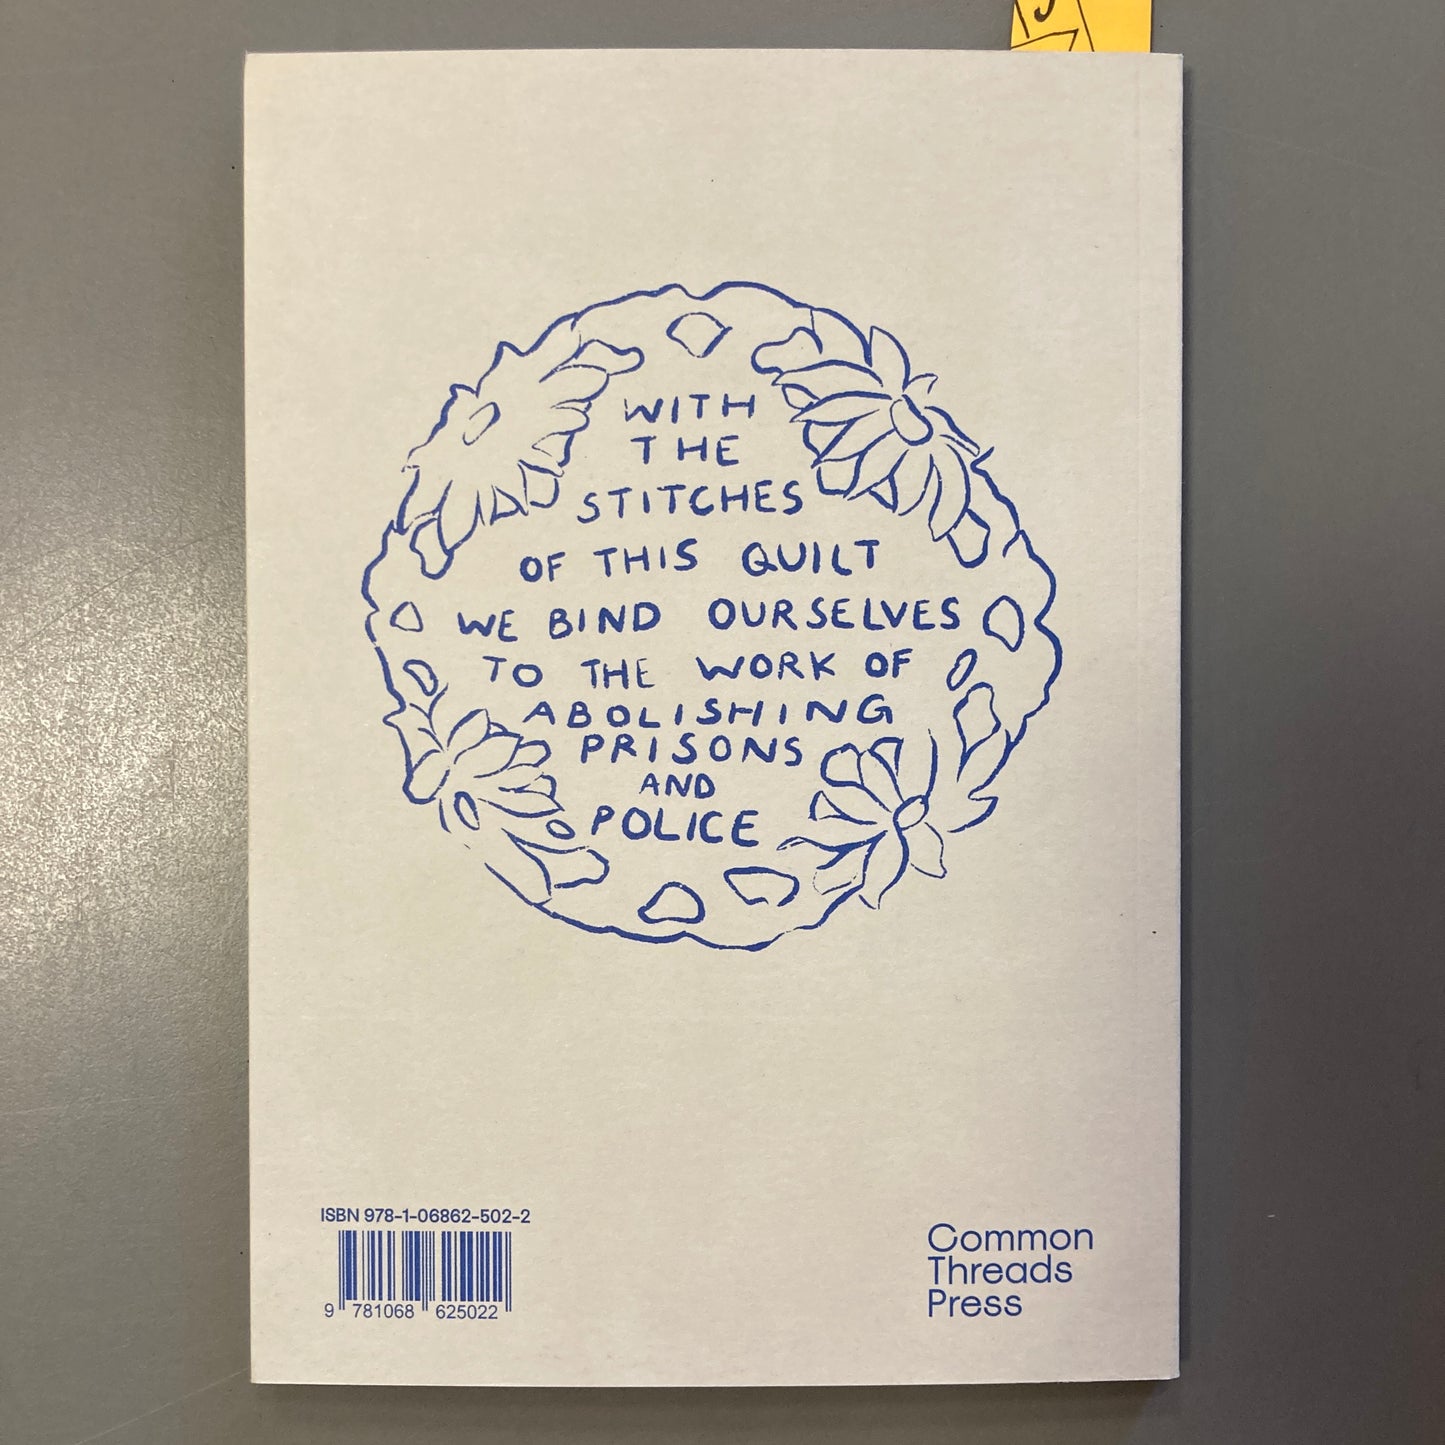 WITH
THE
STITCHES
OF THIS QUILT
WE BIND OURSELVES
TO THE WORK OF
ABOLISHING
PRISONS
AND
POLICE
ISBN 978-1-06862-502-2
9 781068 625022
Common
Threads
Press